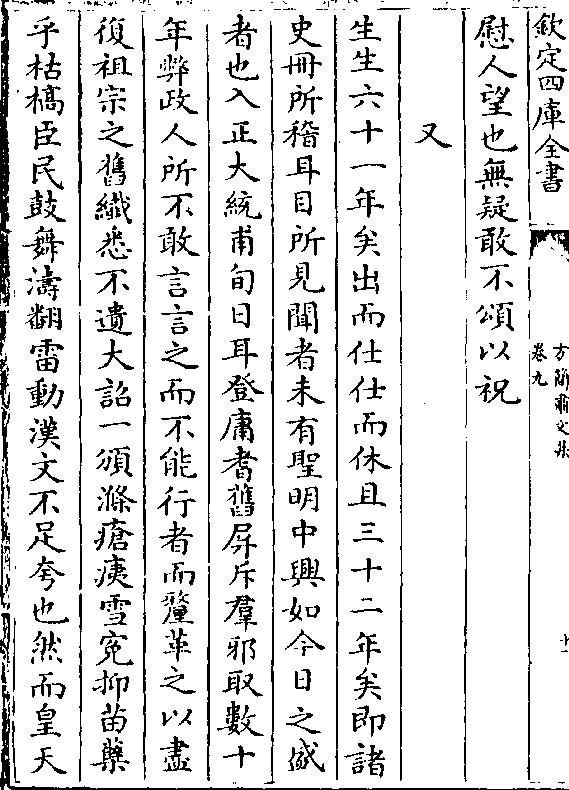 欽定四庫全書
方簡肅文集
卷九
十一
慰人望也無疑敢不頌以祝
又
生生六十一年矣出而仕仕而休且三十二年矣即諸
史冊所稽耳目所見聞者未有聖明中興如今日之盛
者也入正大統甫旬日耳登庸耆舊屏斥羣邪取數十
年弊政人所不敢言言之而不能行者而釐革之以盡
復祖宗之舊纎悉不遺大詔一頒滌瘡痍雪寃抑苗藥
乎枯槁臣民鼓舞濤翻雷動漢文不足夸也然而皇天